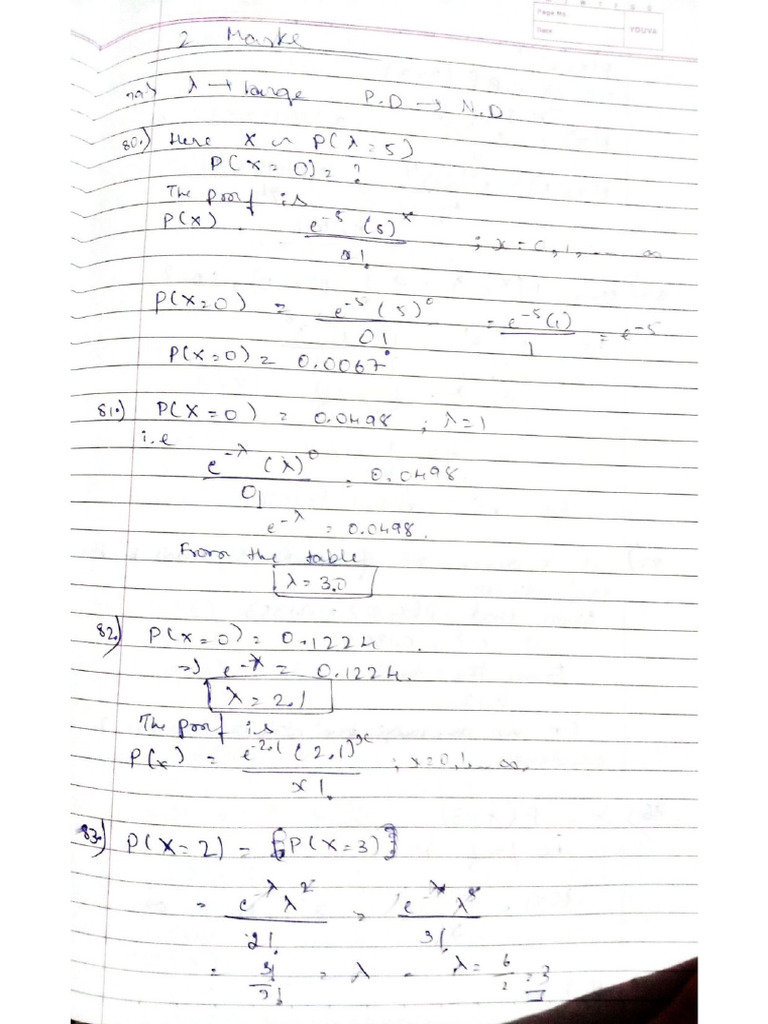 Page No.
Date
YOUVA
2 Marks
79.) λ → large P.D → N.D
80.) Here X ~ P(λ = 5)
P(X = 0) = ?
The pmf is
P(X) e^-5 (5)^x / x! ; x = 0, 1, ... ∞
P(X=0) = e^-5 (5)^0 / 0! = e^-5 (1) / 1 = e^-5
P(X=0) = 0.0067
81.) P(X=0) = 0.0498 ; λ=1
i.e
e^-λ (λ)^0 / 0! = 0.0498
e^-λ = 0.0498.
From the table
λ = 3.0
82.) P(X=0) = 0.1224.
=> e^-λ = 0.1224.
λ = 2.1
The pmf is
P(x) = e^-2.1 (2.1)^x / x! ; x=0, 1, ... ∞.
83.) P(X=2) = [P(X=3)]
= e^-λ λ^2 / 2! = e^-λ λ^3 / 3!
= 3! / 2! = λ = λ = 6/2 = 3